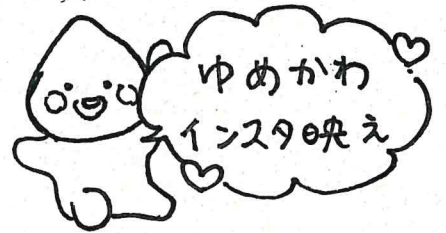 ゆめかわ
インスタ映え